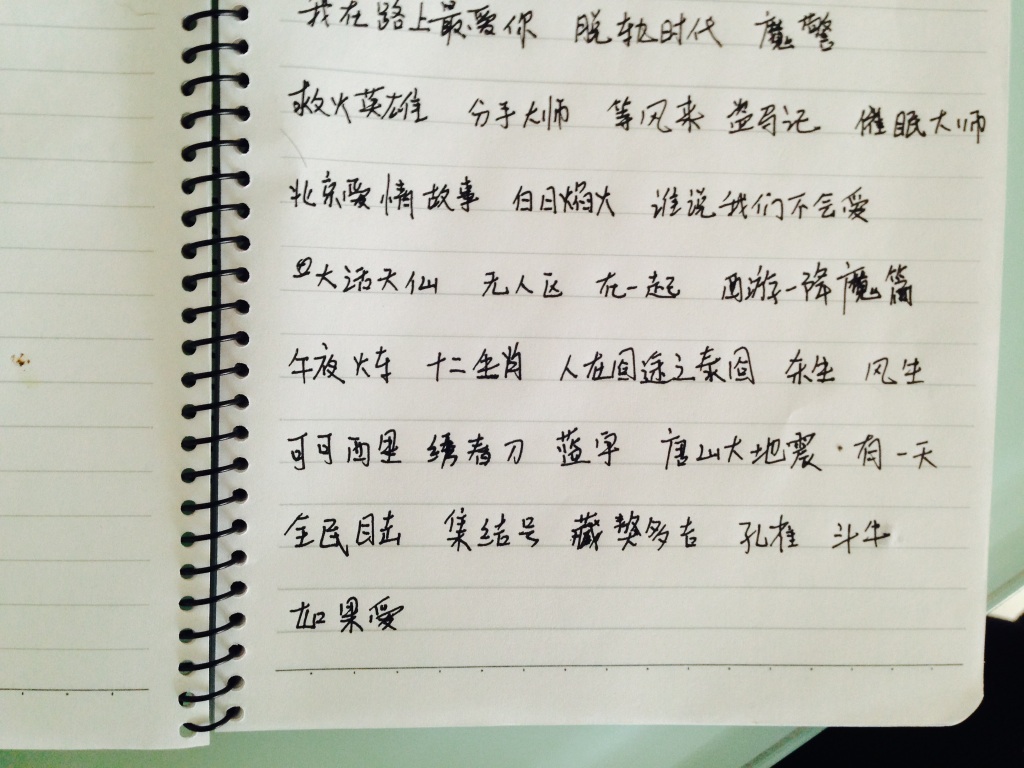 我在路上最爱你 脱轨时代 魔警
救火英雄 分手大师 等风来 盗马记 催眠大师
北京爱情故事 白日焰火 谁说我们不会爱
大话天仙 无人区 在一起 西游-降魔篇
午夜火车 十二生肖 人在囧途之泰囧 东生 风生
可可西里 绣春刀 蓝宇 唐山大地震·有一天
全民目击 集结号 藏獒多吉 孔雀 斗牛
如果爱